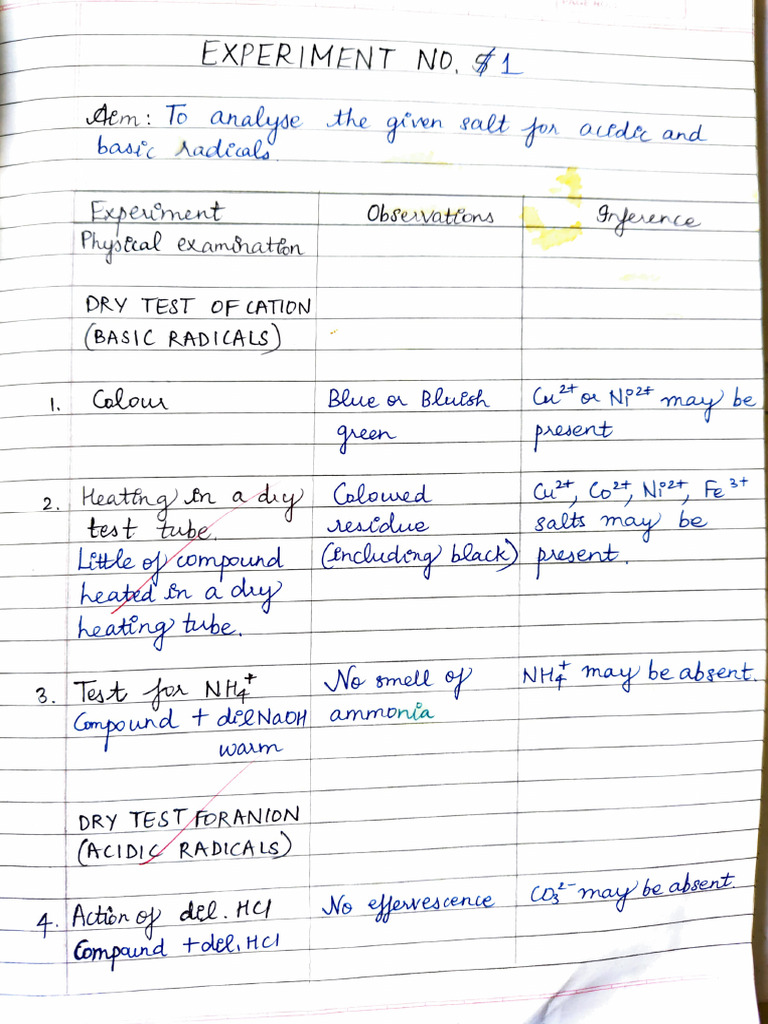 EXPERIMENT NO. 1
Aim: To analyse the given salt for acidic and
basic radicals.
Experiment Observations Inference
Physical examination
DRY TEST OF CATION
(BASIC RADICALS)
1. Colour Blue or Bluish Cu²⁺ or Ni²⁺ may be
green present
2. Heating in a dry Coloured Cu²⁺, Co²⁺, Ni²⁺, Fe³⁺
test tube. residue salts may be
Little of compound (including black) present.
heated in a dry
heating tube.
3. Test for NH₄⁺ No smell of NH₄⁺ may be absent.
Compound + dil NaOH ammonia
warm
DRY TEST FOR ANION
(ACIDIC RADICALS)
4. Action of dil. HCl No effervescence CO₃²⁻ may be absent.
Compound + dil. HCl